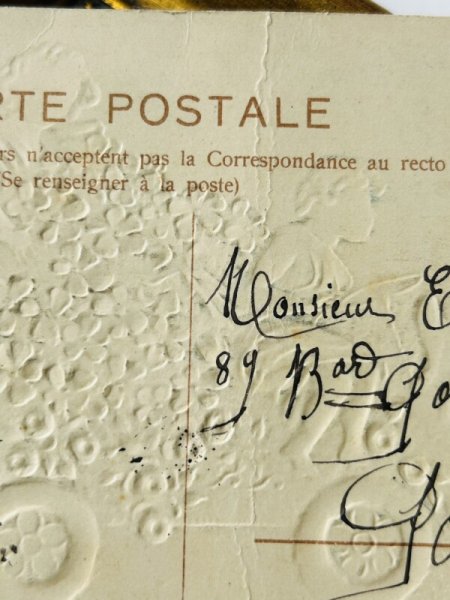 RTE POSTALE
rs n'acceptent pas la Correspondance au recto
(Se renseigner à la poste)
Monsieur E
89 Bard